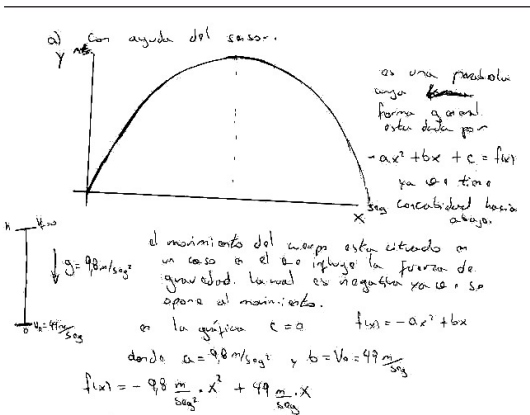 a) Con ayuda del sensor.
Y
es una parabola
cuya
forma general
esta dada por
-ax² + bx + c = f(x)
ya que tiene
concatividad hacia
abajo.
X seg
h
g = 9,8 m/seg²
0 V₀ = 49 m/seg
el movimiento del cuerpo esta cituado en
un caso en el que influye la fuerza de
gravedad. La cual es negativa ya que se
opone al movimiento.
en la gráfica c = 0 f(x) = -ax² + bx
donde a = 9,8 m/seg² y b = V₀ = 49 m/seg
f(x) = - 9,8 m/seg² · x² + 49 m/seg · x